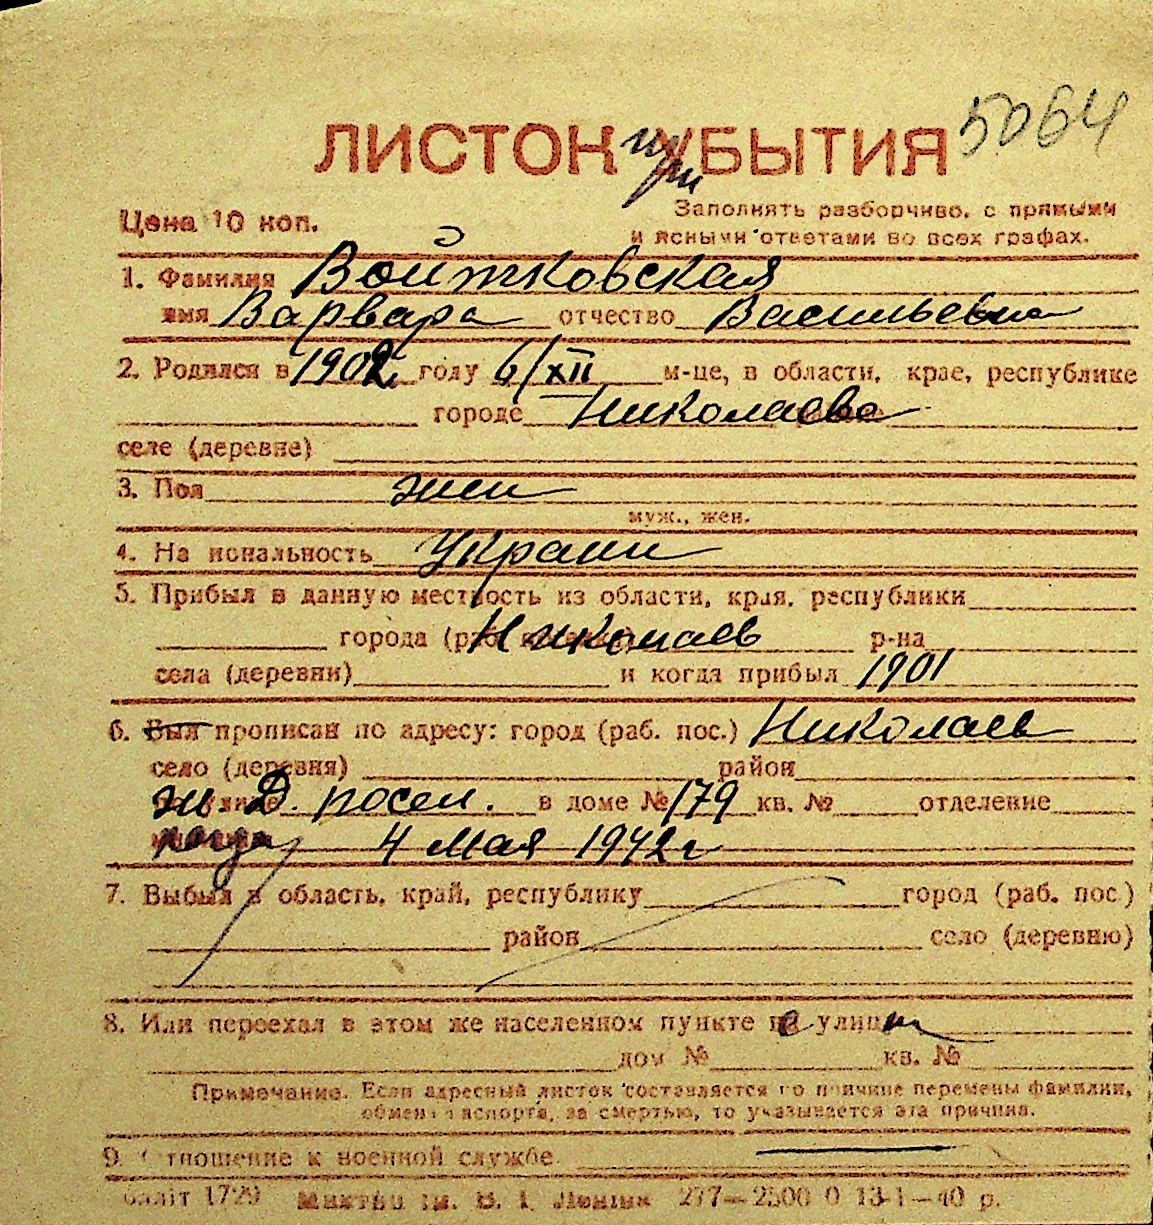 5064
ЛИСТОК при УБЫТИЯ
Цена 10 коп.
Заполнять разборчиво, с прямыми
и ясными ответами во всех графах.
1. Фамилия Войтковская
имя Варвара отчество Васильевна
2. Родился в 1902 году 6/XII м-це, в области, крае, республике
городе Николаеве
селе (деревне)
3. Пол жен
муж., жен.
4. Национальность Украин
5. Прибыл в данную местность из области, края, республики
города (раб. Николаев р-на
села (деревни) и когда прибыл 1901
6. Был прописан по адресу: город (раб. пос.) Николаев
село (деревня) район
ж. Д. посел. в доме № 179 кв. № отделение
когда 4 Мая 1942 г
7. Выбыл в область, край, республику город (раб. пос.)
район село (деревню)
8. Или переехал в этом же населенном пункте с улицы
дом № кв. №
Примечание. Если адресный листок составляется по причине перемены фамилии,
обмена паспорта, за смертью, то указывается эта причина.
9. Отношение к военной службе.
1729 им. В. І. 277—2500 0 13-1—40 р.